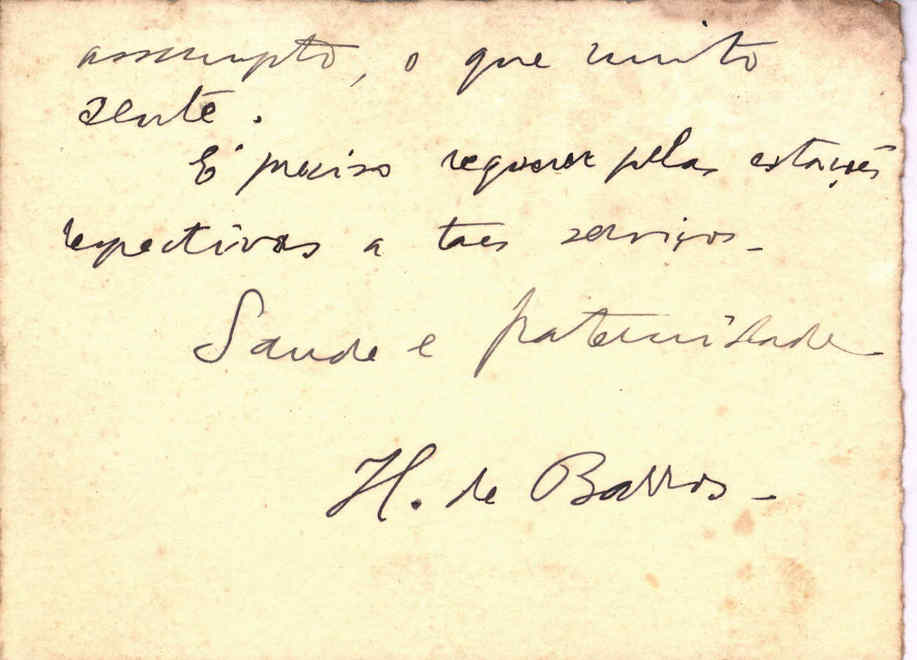 assumpto, o que muito
sente.
É preciso requerer pelas estações
respectivas a taes serviços -
Saude e fraternidade
H. de Barros -